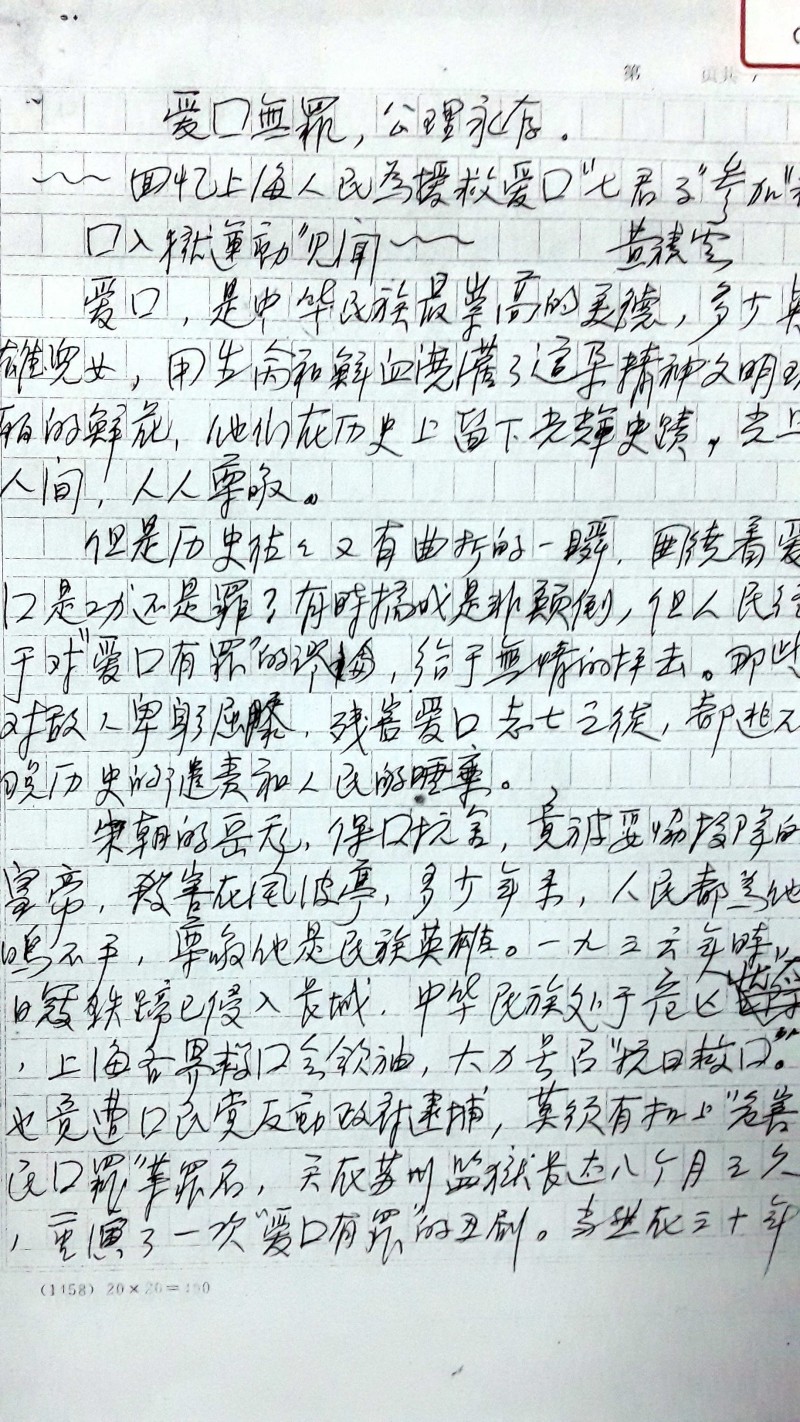 第 页共
爱口無罪，公理永存。
～～回忆上海人民為援救爱口"七君子"参加"
口入獄運動"见闻～～ 黄
爱口，是中华民族最崇高的美德，多少英
雄兒女，用生命和鲜血浇灌了這朵精神文明
的鲜花，他们在历史上留下光輝史蹟，
人间，人人尊敬。
但是历史往々又有曲折的一瞬，围绕着爱
口是功还是罪？有時搞成是非颠倒，但人民
于对"爱口有罪"的谬論，给于無情的抨击。那些
对敌人卑躬屈膝，残害爱口志士之徒，都逃不
脱历史的谴责和人民的唾棄。
宋朝的岳飞，保口抗金，竟被妥协投降的
皇帝，殺害在风波亭，多少年来，人民都為他
鳴不平，尊敬他是民族英雄。一九三六年時，
日寇鉄蹄已侵入长城，中华民族处于危亡
，上海各界救口会领袖，大力号召"抗日救口"。
也竟遭口民党反動政府逮捕，莫须有扣上"危害
民口罪"等罪名，关在苏州监獄长达八个月之久
，重演了一次"爱口有罪"的丑剧。当然在三十年
(1458) 20×20=400